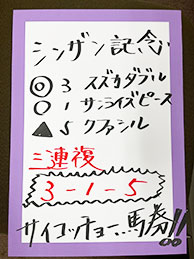 シンザン記念
◎ 3 スズカダブル
○ 1 サンライズピース
▲ 5 クファシル
三連複
3-1-5
サイコッチョー馬券!!